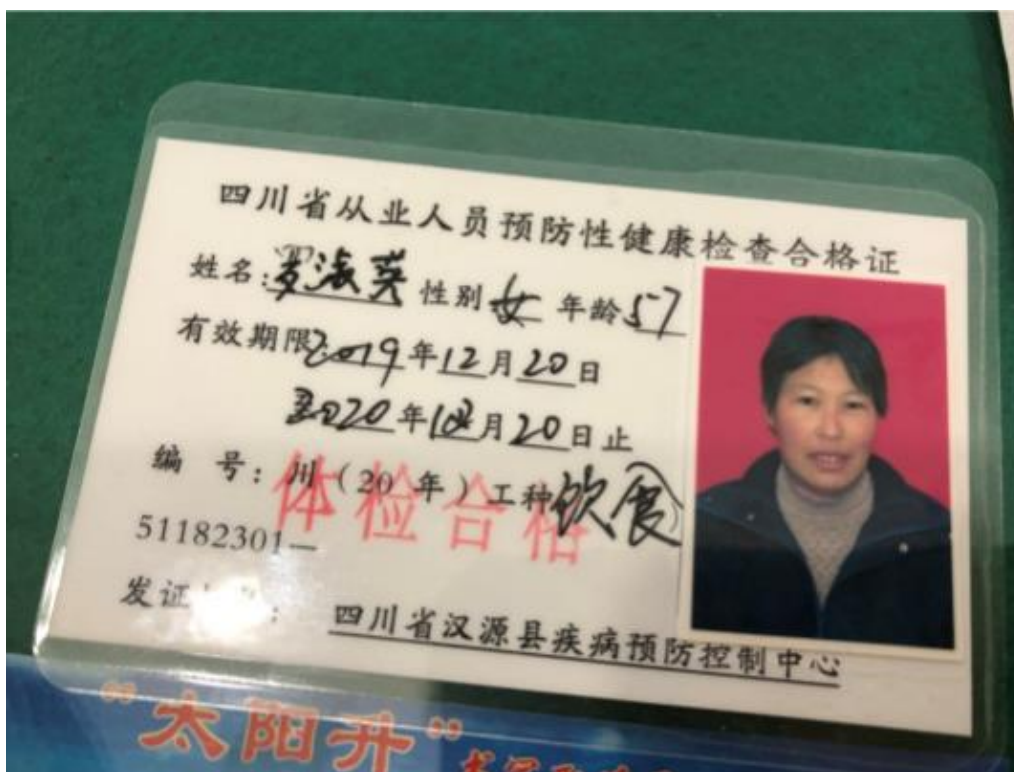 四川省从业人员预防性健康检查合格证
姓名:罗淑英 性别 女 年龄 57
有效期限 2019 年 12 月 20 日
至2020 年 12 月 20 日止
编 号: 川 ( 20 年 ) 工种 饮食
体检合格
51182301—
发证 : 四川省汉源县疾病预防控制中心
“太阳升”